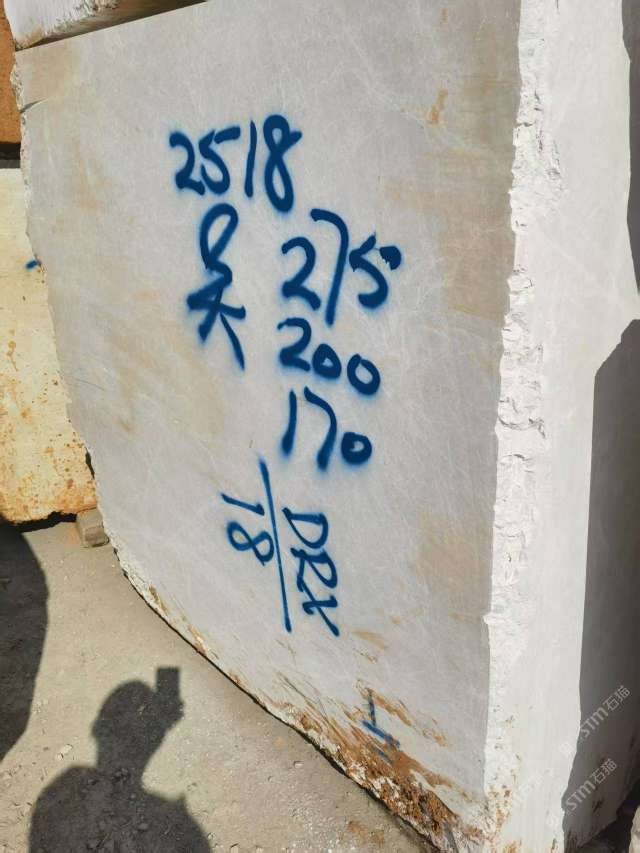 2518
吴
275
200
170
DRX
18
STM石猫
STM石猫